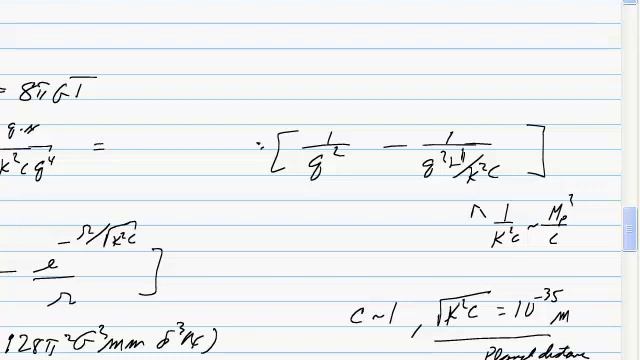 = 8πGT
q·x
κ²c q⁴ = · [ 1/q² − 1/(q² + 1/κ²c) ]
^ 1/κ²c ~ Mp²/c
− e^(−r/√κ²c) / r ]
c ~ 1 , √κ²c = 10⁻³⁵ m
128π²G² m m δ³(x)
Planck distance